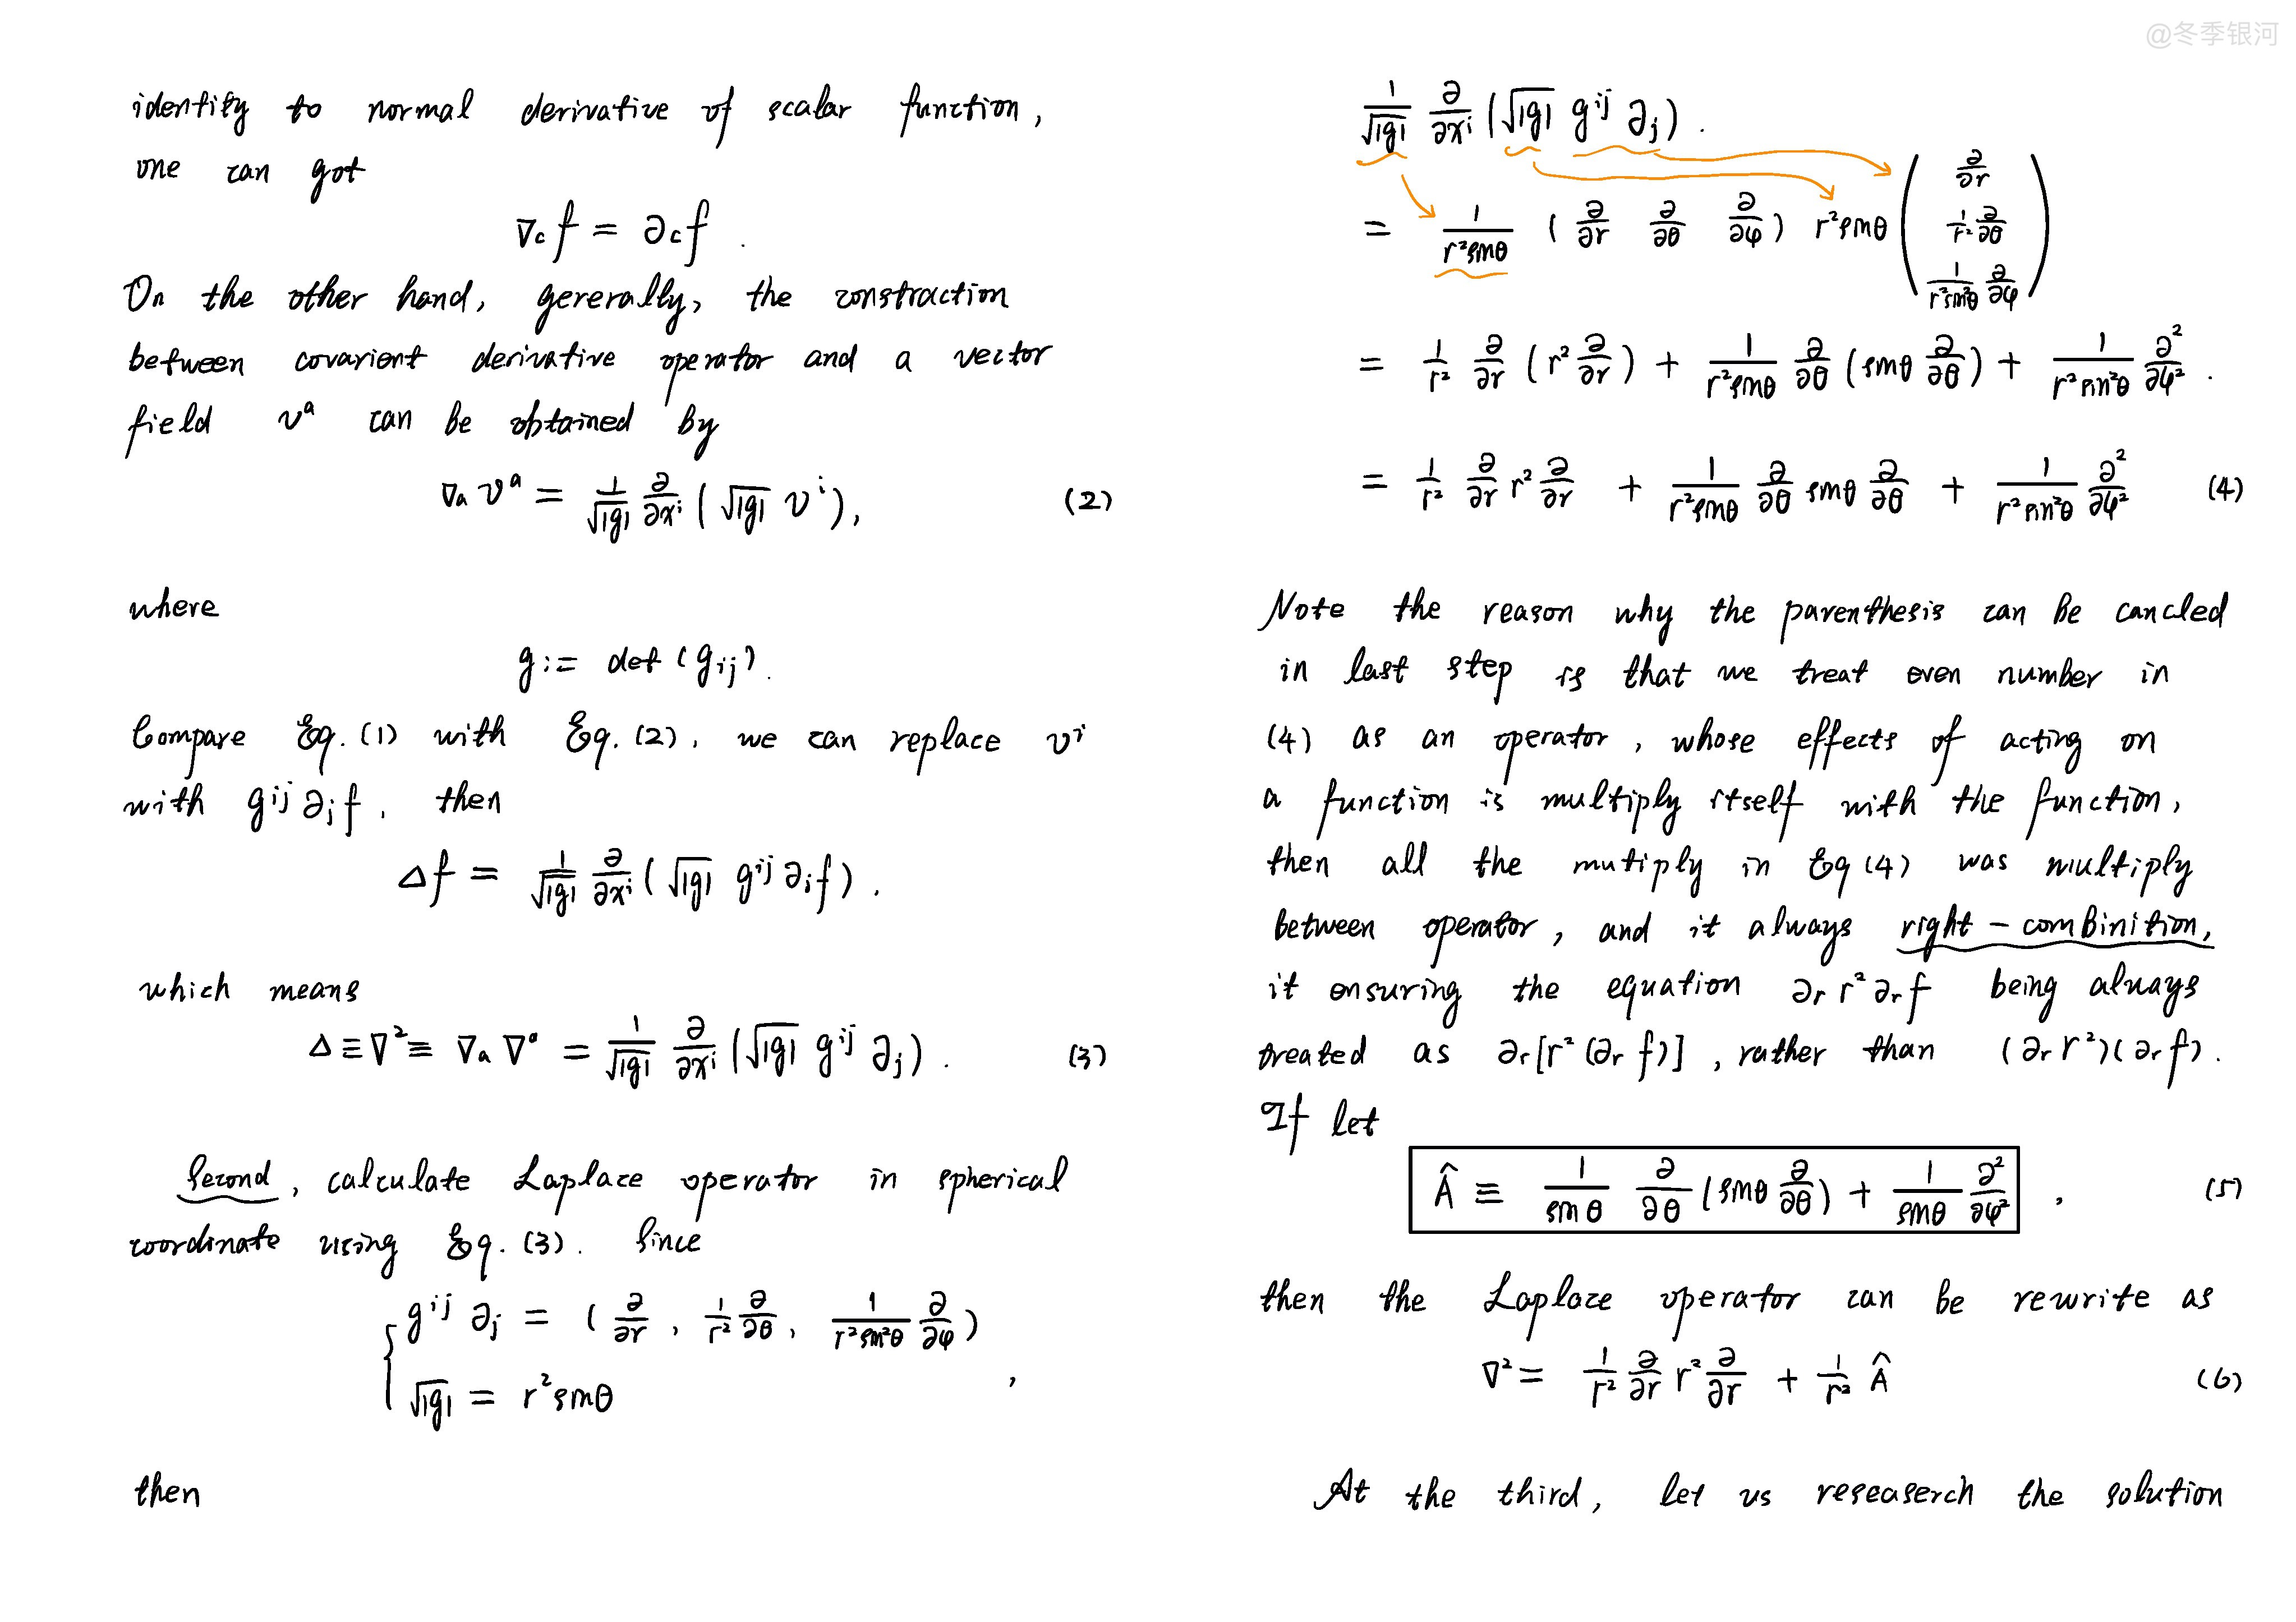 @冬季银河
identity to normal derivative of scalar function,
one can got
∇c f = ∂c f .
On the other hand, gererally, the constraction
between covarient derivative operator and a vector
field v^a can be obtained by
∇a v^a = 1/√|g| ∂/∂x^i ( √|g| v^i ), (2)
where
g := det (g_ij).
Compare Eq. (1) with Eq. (2), we can replace v^i
with g^ij ∂_j f, then
Δf = 1/√|g| ∂/∂x^i ( √|g| g^ij ∂_j f ) .
which means
Δ ≡ ∇² ≡ ∇a ∇^a = 1/√|g| ∂/∂x^i ( √|g| g^ij ∂_j ) . (3)
Second, calculate Laplace operator in spherical
coordinate using Eq. (3). Since
g^ij ∂_j = ( ∂/∂r , 1/r² ∂/∂θ , 1/(r² sin²θ) ∂/∂φ )
√|g| = r² sinθ ,
then
1/√|g| ∂/∂x^i ( √|g| g^ij ∂_j ) .
= 1/(r² sinθ) ( ∂/∂r ∂/∂θ ∂/∂φ ) r² sinθ ( ∂/∂r 1/r² ∂/∂θ 1/(r² sin²θ) ∂/∂φ )
= 1/r² ∂/∂r ( r² ∂/∂r ) + 1/(r² sinθ) ∂/∂θ ( sinθ ∂/∂θ ) + 1/(r² sin²θ) ∂²/∂φ² .
= 1/r² ∂/∂r r² ∂/∂r + 1/(r² sinθ) ∂/∂θ sinθ ∂/∂θ + 1/(r² sin²θ) ∂²/∂φ² (4)
Note the reason why the parenthesis can be cancled
in last step is that we treat even number in
(4) as an operator, whose effects of acting on
a function is multiply itself with the function,
then all the mutiply in Eq (4) was multiply
between operator, and it always right-combinition,
it ensuring the equation ∂r r² ∂r f being always
treated as ∂r [r² (∂r f)], rather than (∂r r²)(∂r f).
If let
Â ≡ 1/sinθ ∂/∂θ ( sinθ ∂/∂θ ) + 1/sinθ ∂²/∂φ² . (5)
then the Laplace operator can be rewrite as
∇² = 1/r² ∂/∂r r² ∂/∂r + 1/r² Â (6)
At the third, let us reseaserch the solution